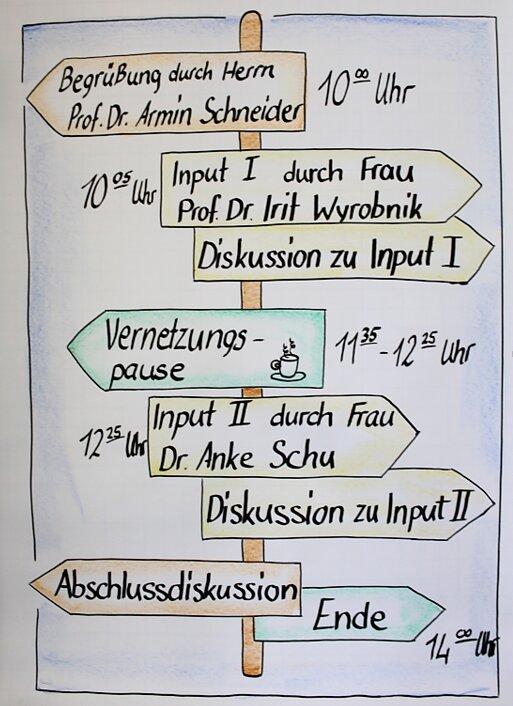 Begrüßung durch Herrn
Prof. Dr. Armin Schneider
10⁰⁰ Uhr
10⁰⁵ Uhr
Input I durch Frau
Prof. Dr. Irit Wyrobnik
Diskussion zu Input I
Vernetzungs-
pause
11³⁵ - 12²⁵ Uhr
12²⁵ Uhr
Input II durch Frau
Dr. Anke Schu
Diskussion zu Input II
Abschlussdiskussion
Ende
14⁰⁰ Uhr